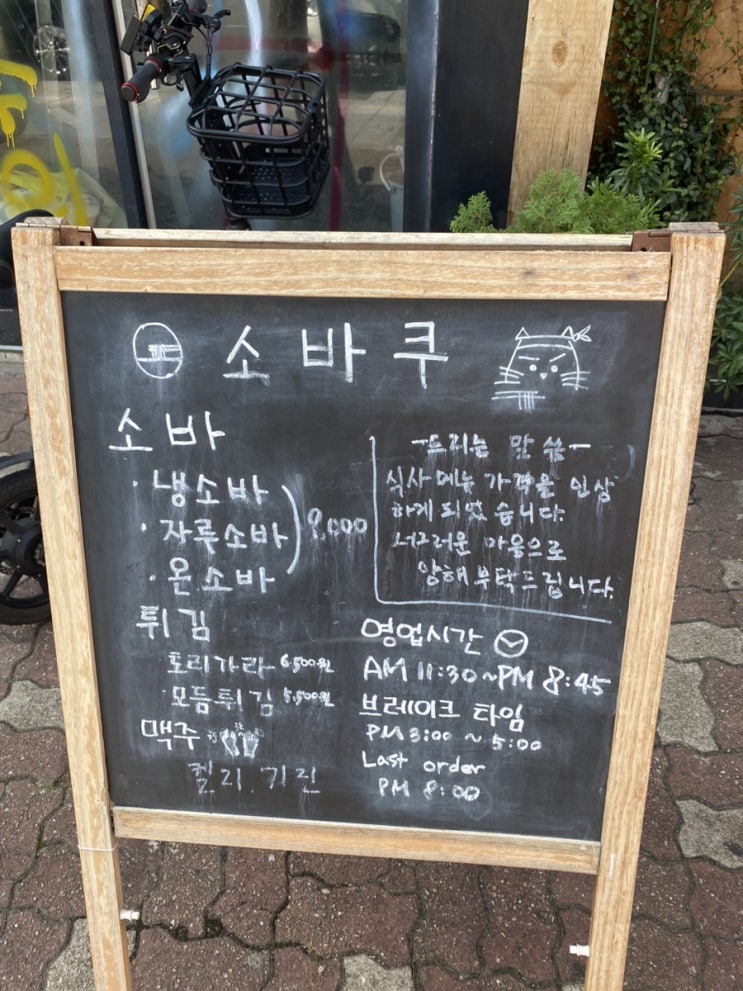 소바쿠
소바
· 냉소바
· 자루소바
· 온소바
9,000
튀김
· 토리가라 6,500원
· 모듬튀김 5,500원
맥주
켈리, 기린
-드리는 말씀-
식사메뉴 가격을 인상
하게 되었습니다.
너그러운 마음으로
양해부탁드립니다.
영업시간
AM 11:30~PM 8:45
브레이크 타임
PM 3:00 ~ 5:00
Last order
PM 8:00